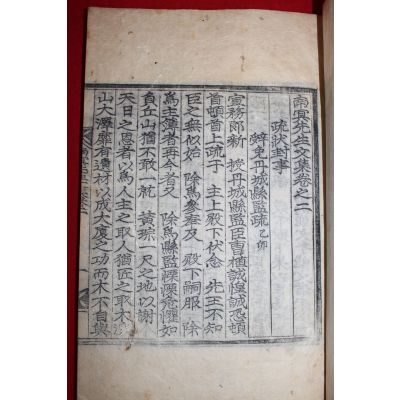 南冥先生文集卷之二
疏狀封事
辭免丹城縣監疏 乙卯
宣務郎新授丹城縣監臣曺植誠惶誠恐頓
首頓首上疏于 主上殿下伏念 先王不知
臣之無似始 除爲參奉及 殿下嗣服 除
爲主簿者再今者又 除爲縣監慄慄危懼如
負丘山猶不敢一就 黃琮一尺之地以謝
天日之恩者以爲人主之取人猶匠之取木深
山大澤靡有遺材以成大廈之功而木不自與